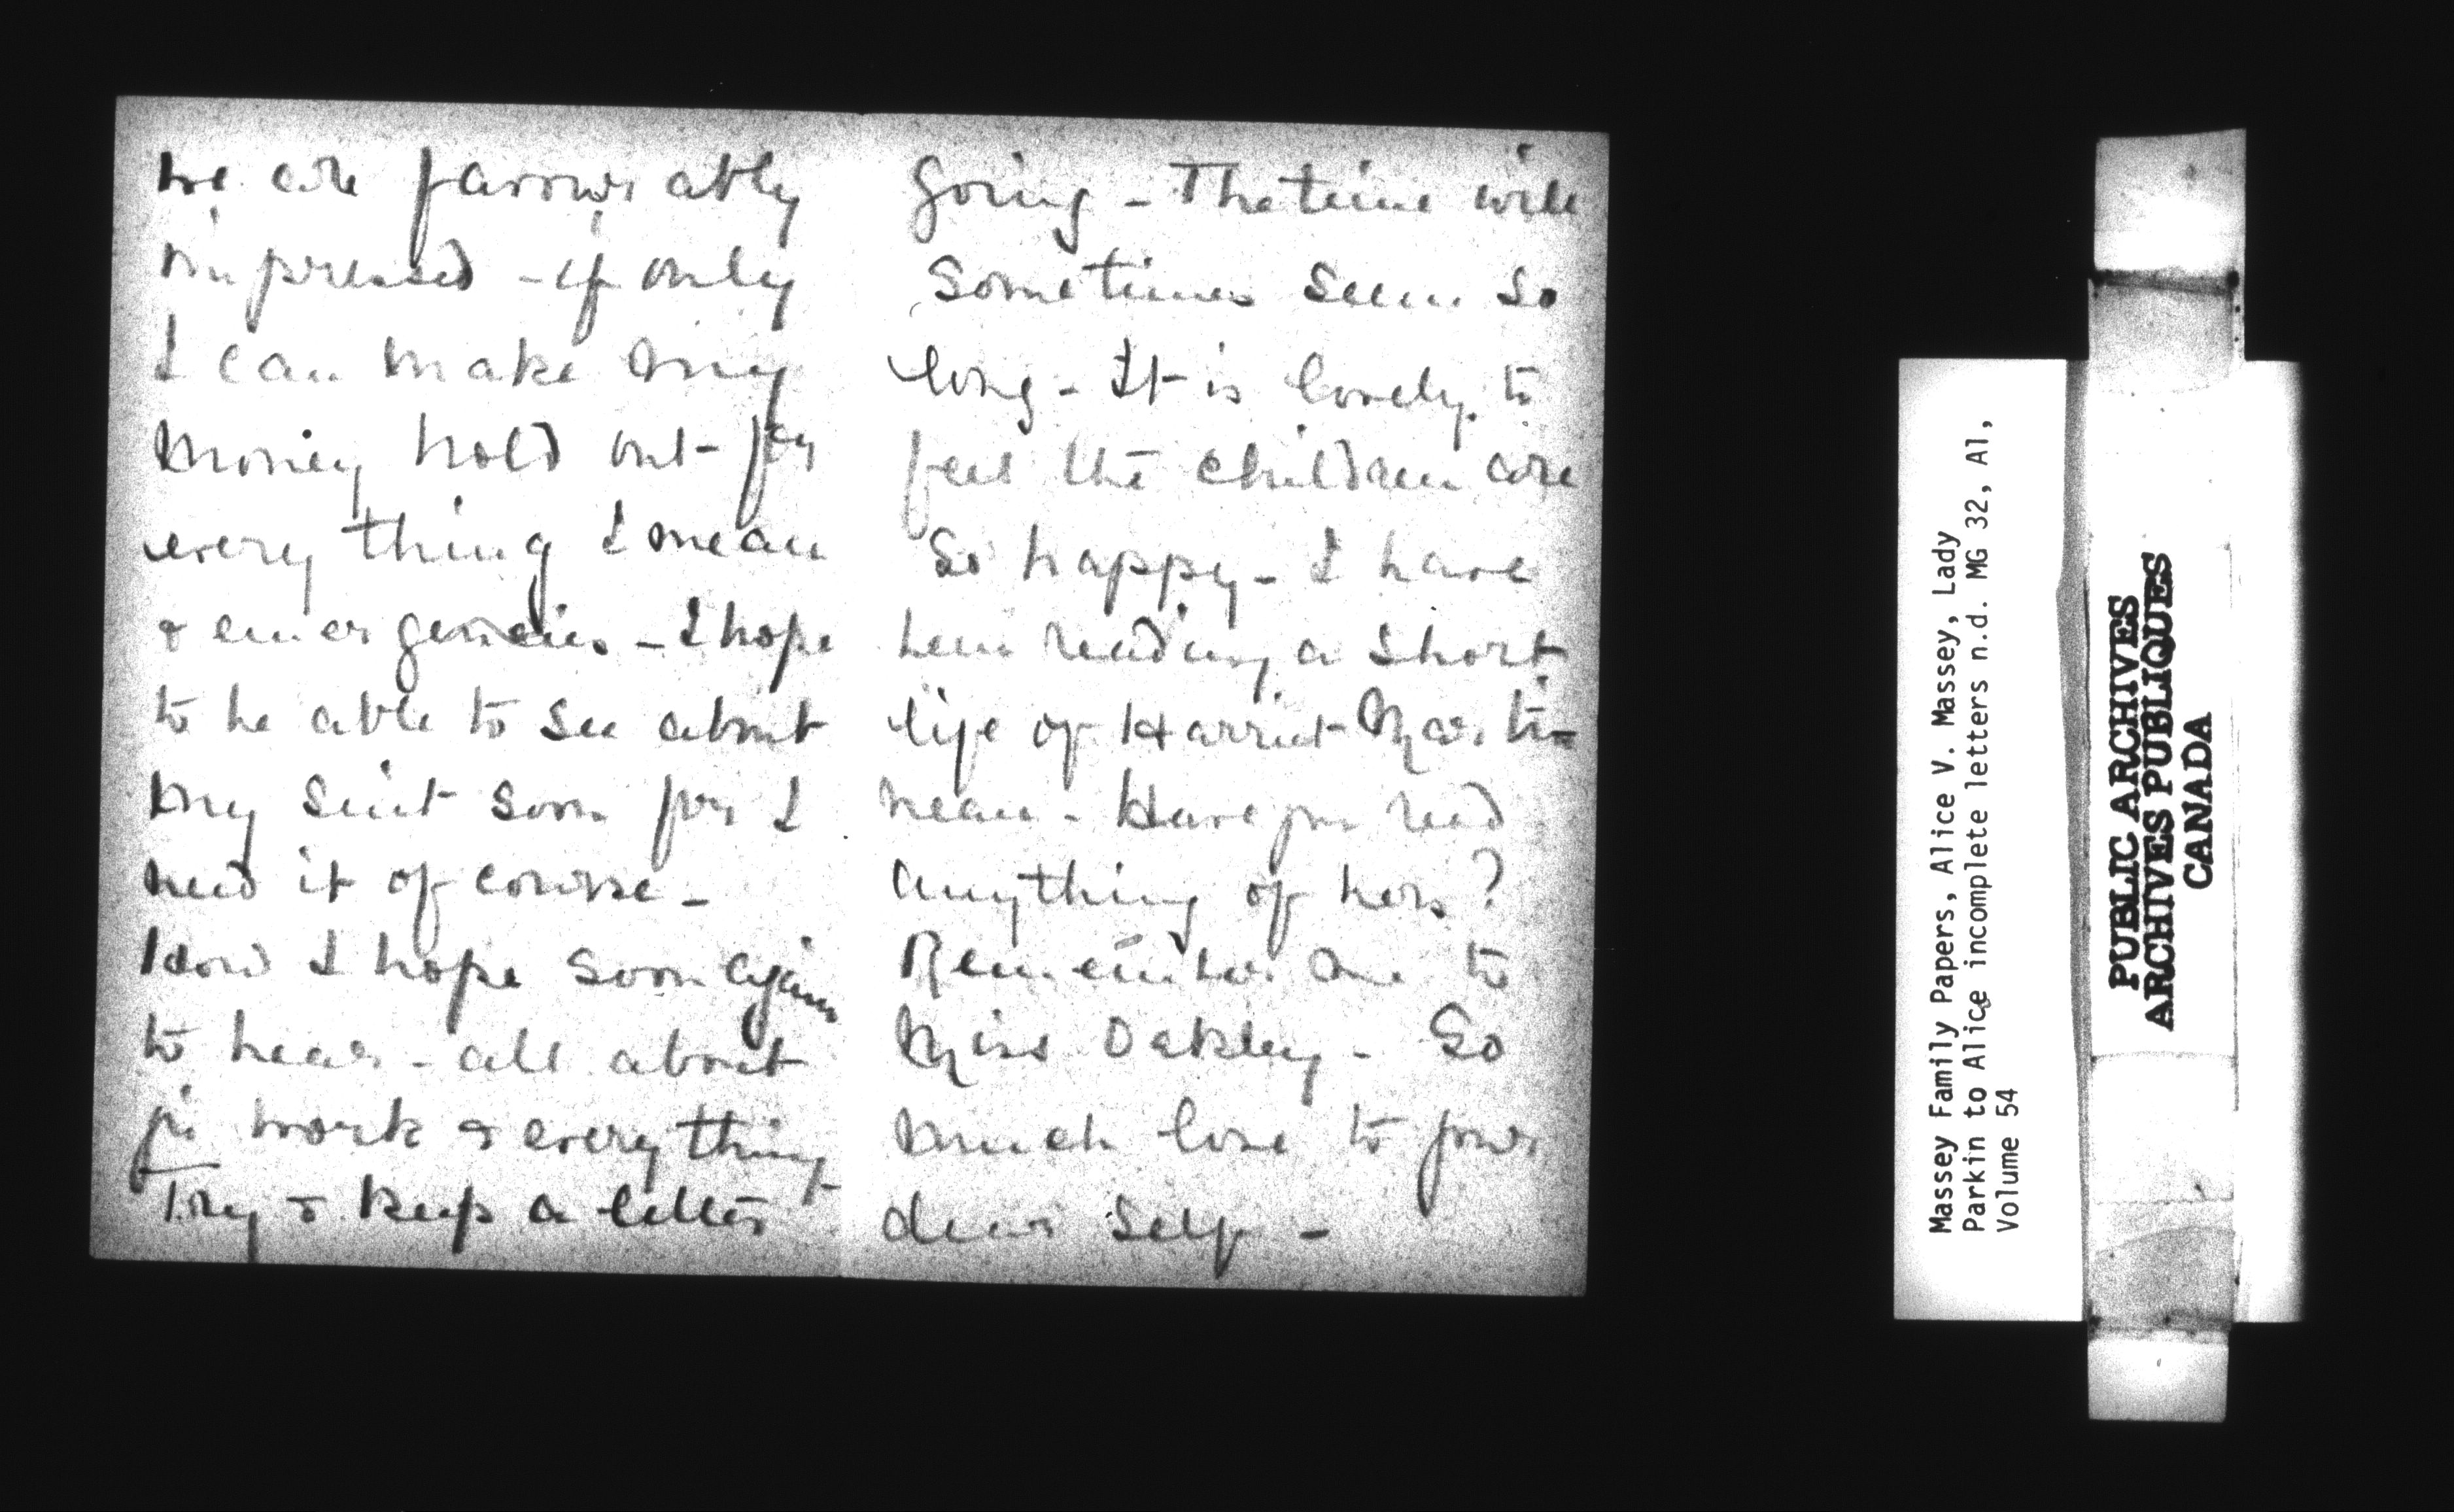 we are favourably
impressed - if only
I can make my
money hold out - for
everything I mean
& emergencies - I hope
to be able to see about
my suit soon for I
need it of course -
How I hope soon again
to hear - all about
yr work & everything
Try & keep a letter
going - The time will
sometimes seem so
long - It is lovely to
feel the children are
so happy - I have
been reading a short
life of Harriet Marti=
neau - Have you read
anything of hers?
Remember me to
Miss Oakley - So
much love to your
dear self -
Massey Family Papers, Alice V. Massey, Lady
Parkin to Alice incomplete letters n.d. MG 32, A1,
Volume 54
PUBLIC ARCHIVES
ARCHIVES PUBLIQUES
CANADA